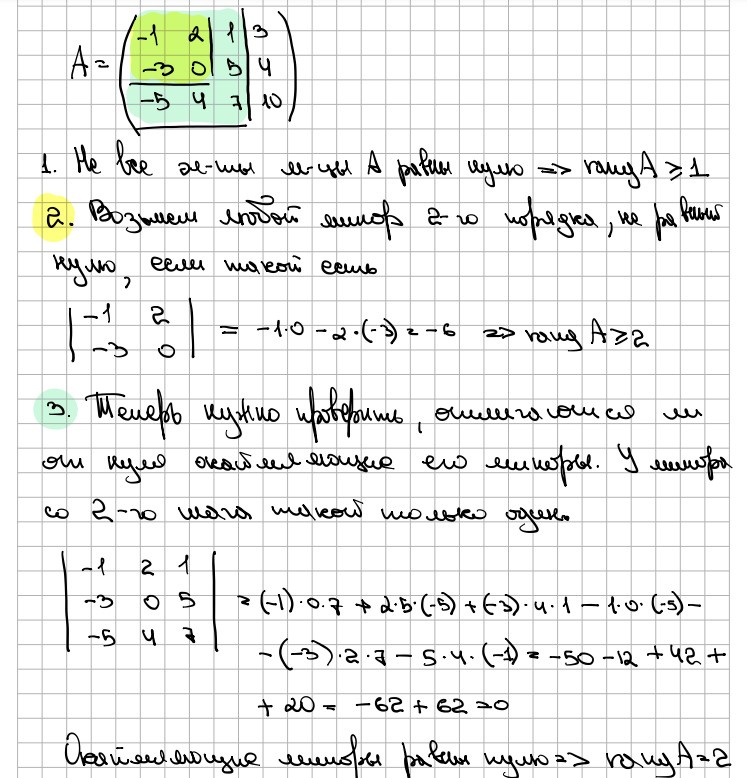 A = (-1 2 1 3
-3 0 5 4
-5 4 7 10)
1. Не все эл-ты м-цы A равны нулю => rang A ≥ 1
2. Возьмем любой минор 2-го порядка, не равный
нулю, если такой есть
|-1 2
-3 0| = -1·0 - 2·(-3) = -6 => rang A ≥ 2
3. Теперь нужно проверить, отличаются ли
от нуля окаймляющие его миноры. У минора
со 2-го шага такой только один.
|-1 2 1
-3 0 5
-5 4 7| = (-1)·0·7 + 2·5·(-5) + (-3)·4·1 - 1·0·(-5) -
- (-3)·2·7 - 5·4·(-1) = -50 - 12 + 42 +
+ 20 = -62 + 62 = 0
Окаймляющие миноры равны нулю => rang A = 2